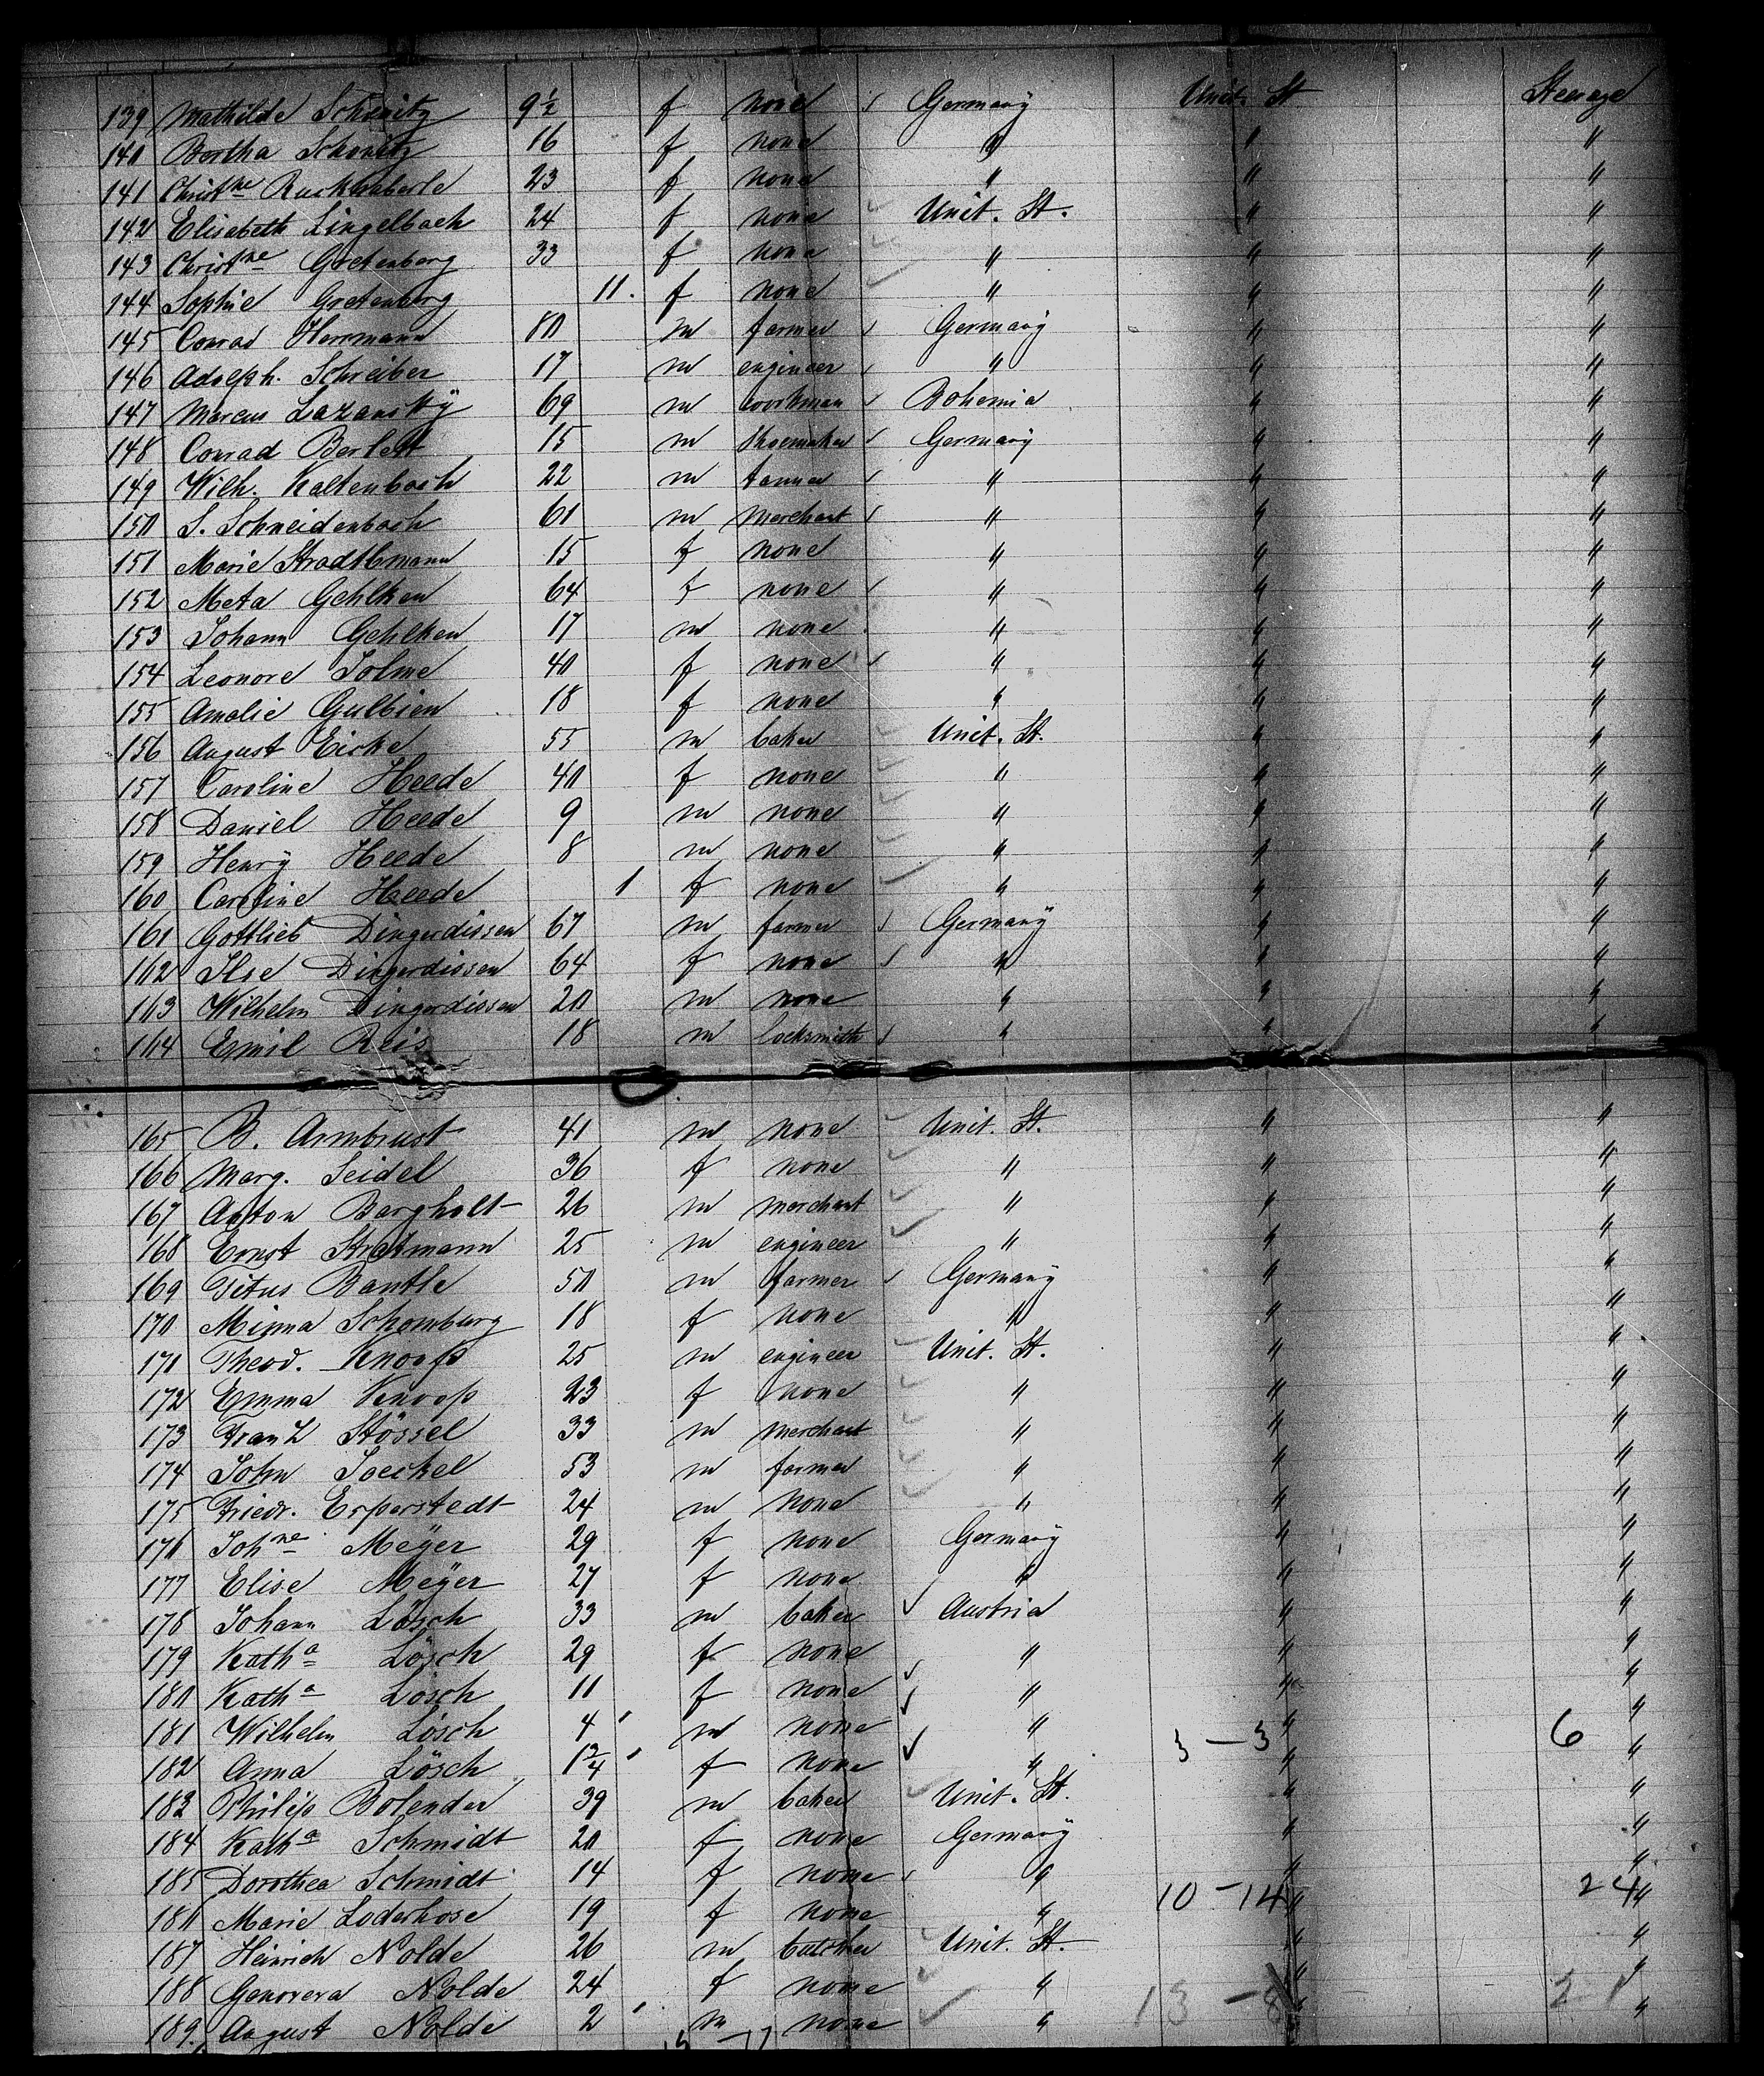 139 Mathilde Schanitz 9½ f none ✓ Germany Unit. St Steerage
140 Bertha Schanitz 16 f none " " "
141 Christne Ruckhaberle 23 f none " " "
142 Elisabeth Lingelbach 24 f none Unit. St. " "
143 Christne Gretenberg 33 f none " " "
144 Sophie Gretenberg 11. f none " " "
145 Conrad Herrmann 80 m farmer ✓ Germany " "
146 Adolph. Schreiber 17 m engineer ✓ " " "
147 Marcus Lazansky 69 m workman ✓ Bohemia " "
148 Conrad Berlett 15 m shoemaker ✓ Germany " "
149 Wilh. Kaltenbach 22 m tanner ✓ " " "
150 S. Schneidenbach 61 m merchant ✓ " " "
151 Marie Stradtlmann 15 f none " " "
152 Meta Gehlken 64 f none ✓ " " "
153 Johann Gehlken 17 m none " " "
154 Leonore Solme 40 f none ✓ " " "
155 Amalie Gulbien 18 f none " " "
156 August Eicke 55 m baker Unit. St. " "
157 Caroline Heede 40 f none " " "
158 Daniel Heede 9 m none " " "
159 Henry Heede 8 m none " " "
160 Caroline Heede 1 f none " " "
161 Gottlieb Dingerdissen 67 m farmer ✓ Germany " "
162 Ilse Dingerdissen 64 f none ✓ " " "
163 Wilhelm Dingerdissen 20 m none " " "
164 Emil Reis 18 m locksmith ✓ " " "
165 B. Armbrust 41 m none Unit. St. " "
166 Marg. Seidel 36 f none " " "
167 Anton Bargholt 26 m merchant " " "
168 Ernst Stratmann 25 m engineer " " "
169 Titus Bantle 50 m farmer ✓ Germany " "
170 Minna Schomburg 18 f none " " "
171 Theod. Knoop 25 m engineer Unit. St. " "
172 Emma Knoop 23 f none " " "
173 Franz Stössel 33 m merchant " " "
174 John Joeckel 53 m farmer " " "
175 Friedr. Erperstedt 24 m none " " "
176 Johne Meyer 29 f none Germany " "
177 Elise Meyer 27 f none " " "
178 Johann Lösch 33 m baker ✓ Austria " "
179 Katha Lösch 29 f none " " "
180 Katha Lösch 11 f none ✓ " " "
181 Wilhelm Lösch 4 m none ✓ " " "
3 – 3 6
182 Anna Lösch 1¾ f none ✓ " " "
183 Philip Bolender 39 m baker Unit. St. " "
184 Katha Schmidt 20 f none Germany " "
185 Dorothea Schmidt 14 f none ✓ " " "
10 – 14 24
186 Marie Loderhose 19 f none " " "
187 Heinrich Nolde 26 m butcher Unit. St. " "
188 Genovera Nolde 24 f none " " "
13 – 8 21
189. August Nolde 2 m none " " "